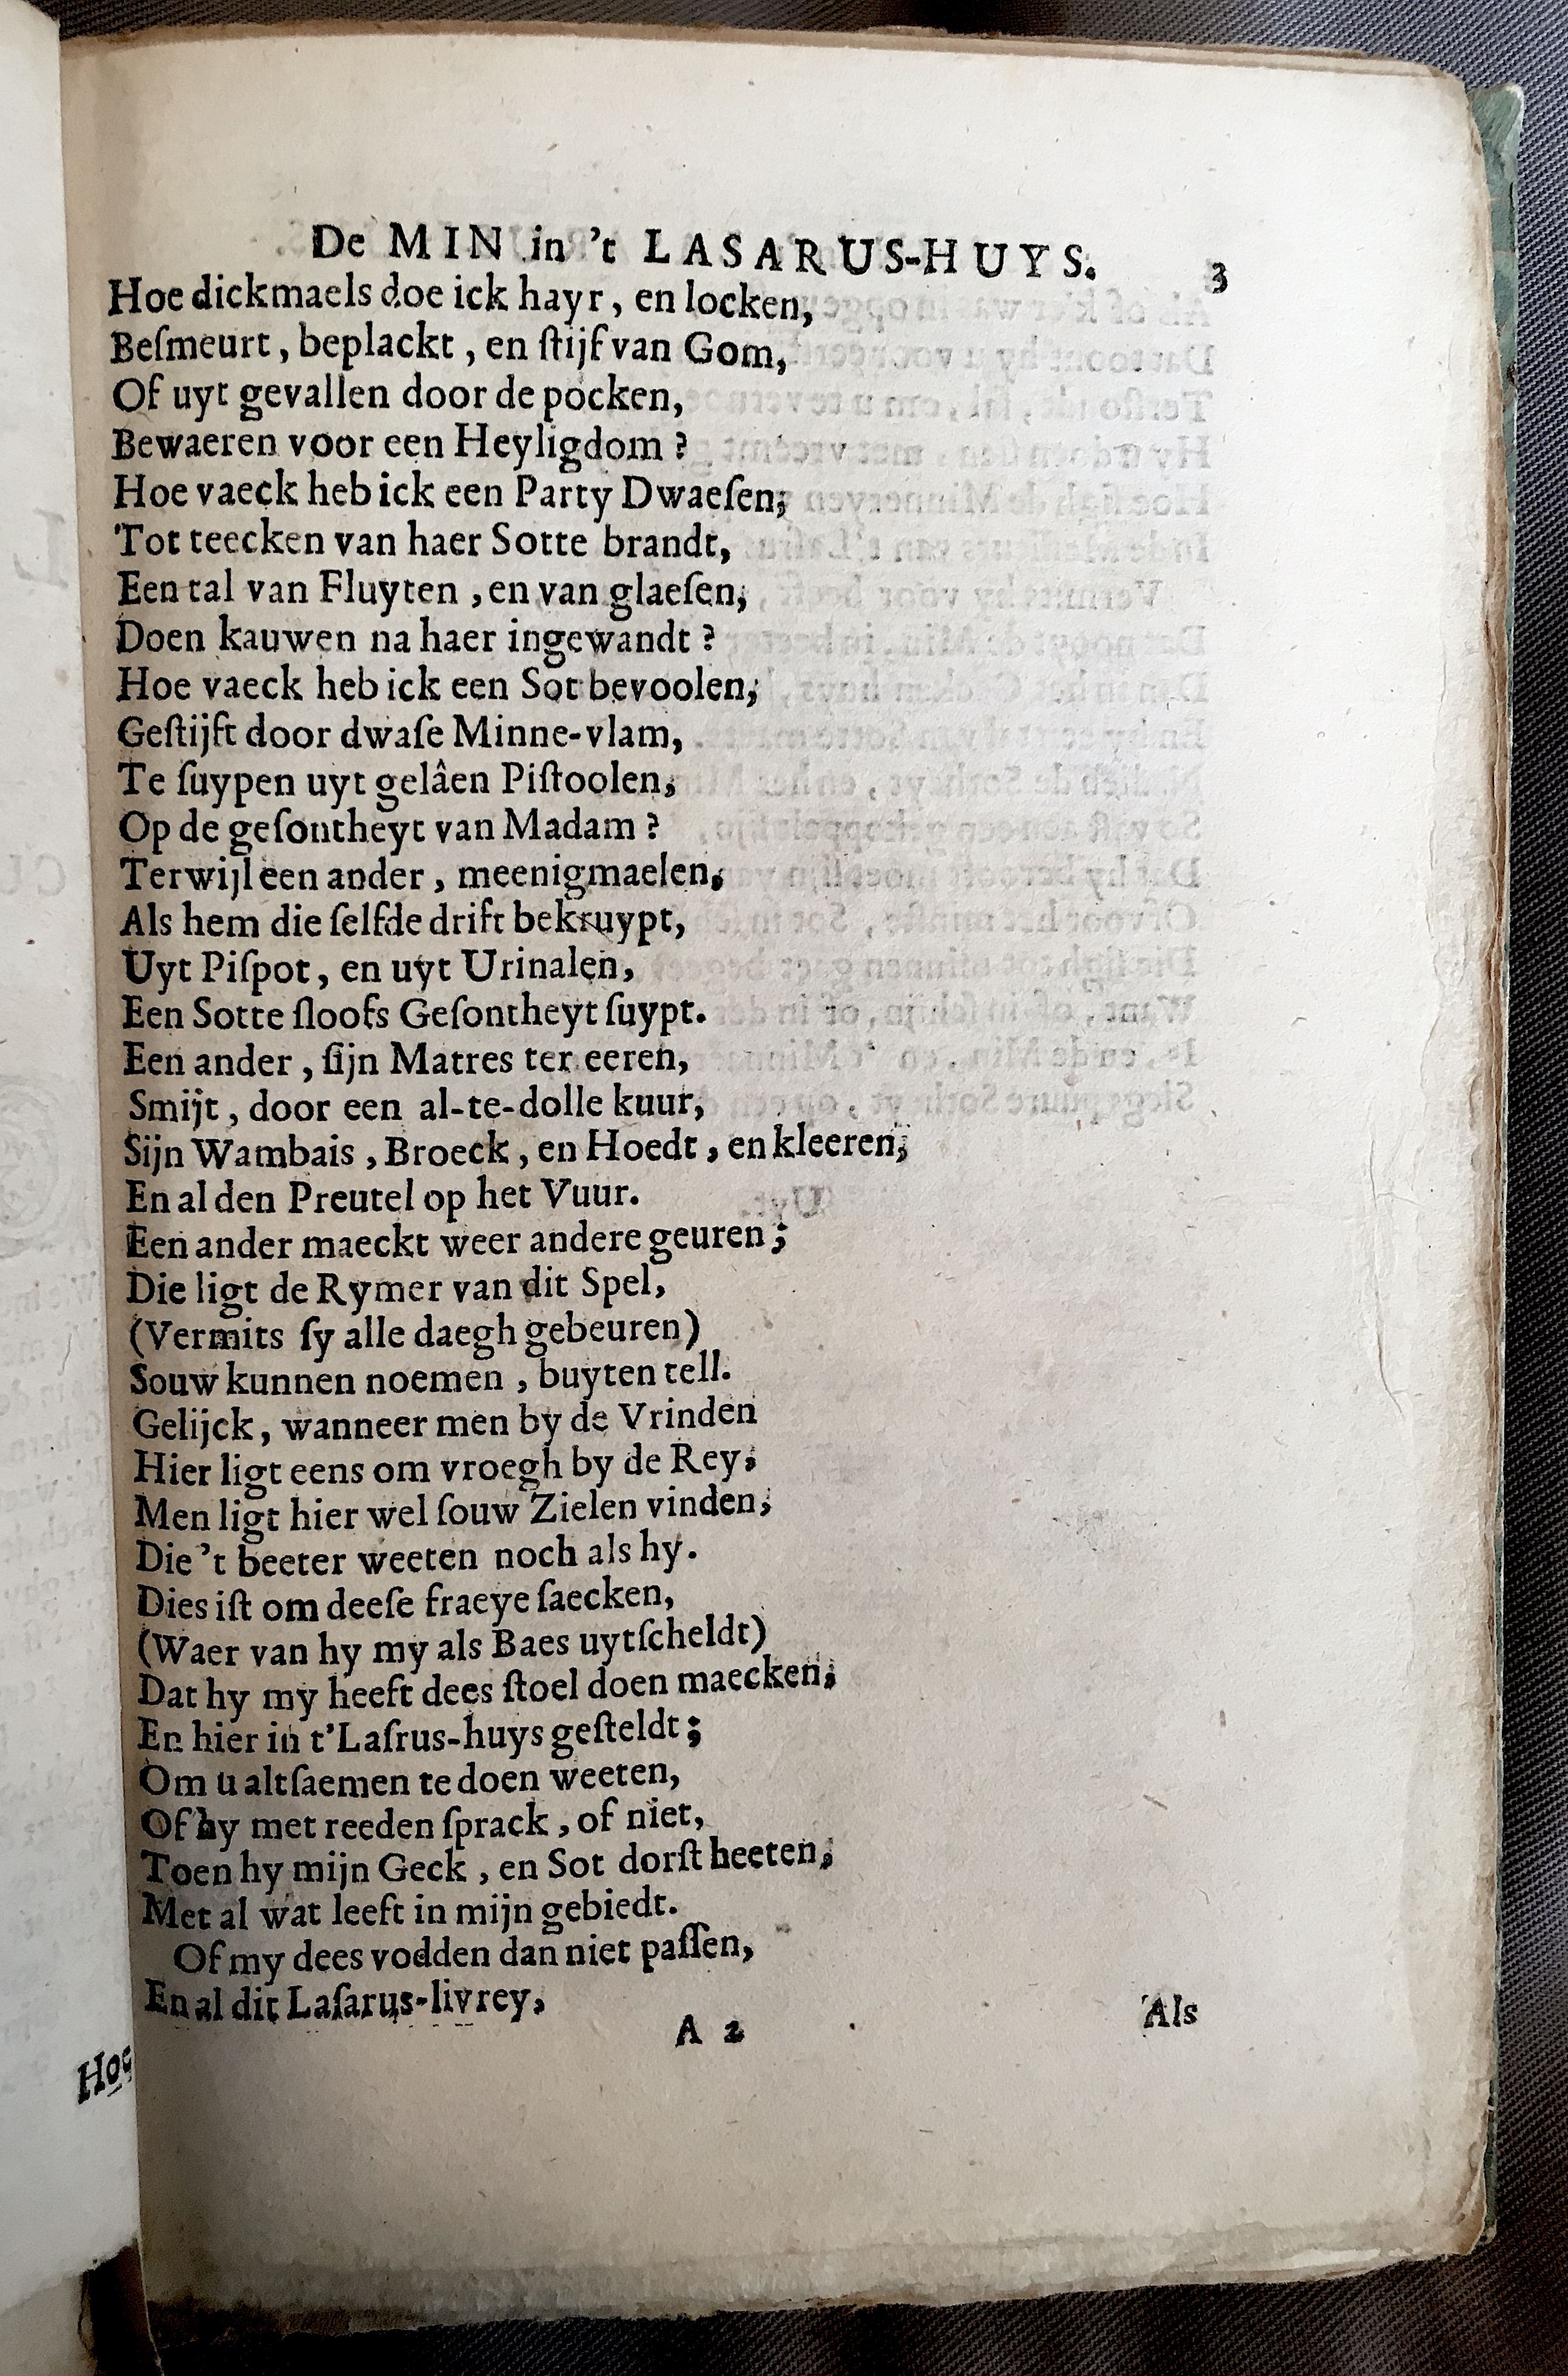 De MIN in 't LASARUS-HUYS. 3
Hoe dickmaels doe ick hayr, en locken,
Beſmeurt, beplackt, en ſtijf van Gom,
Of uyt gevallen door de pocken,
Bewaeren voor een Heyligdom?
Hoe vaeck heb ick een Party Dwaeſen,
Tot teecken van haer Sotte brandt,
Een tal van Fluyten, en van glaeſen,
Doen kauwen na haer ingewandt?
Hoe vaeck heb ick een Sot bevoolen,
Geſtijft door dwaſe Minne-vlam,
Te ſuypen uyt gelâen Piſtoolen,
Op de geſontheyt van Madam?
Terwijl een ander, meenigmaelen,
Als hem die ſelfde drift bekruypt,
Uyt Piſpot, en uyt Urinalen,
Een Sotte ſloofs Geſontheyt ſuypt.
Een ander, ſijn Matres ter eeren,
Smijt, door een al-te-dolle kuur,
Sijn Wambais, Broeck, en Hoedt, en kleeren,
En al den Preutel op het Vuur.
Een ander maeckt weer andere geuren;
Die ligt de Rymer van dit Spel,
(Vermits ſy alle daegh gebeuren)
Souw kunnen noemen, buyten tell.
Gelijck, wanneer men by de Vrinden
Hier ligt eens om vroegh by de Rey,
Men ligt hier wel ſouw Zielen vinden,
Die 't beeter weeten noch als hy.
Dies iſt om deeſe fraeye ſaecken,
(Waer van hy my als Baes uytſcheldt)
Dat hy my heeft dees ſtoel doen maecken,
En hier in t'Laſrus-huys geſteldt;
Om u altſaemen te doen weeten,
Of hy met reeden ſprack, of niet,
Toen hy mijn Geck, en Sot dorſt heeten,
Met al wat leeft in mijn gebiedt.
Of my dees vodden dan niet paſſen,
En al dit Laſarus-livrey,
A 2 Als